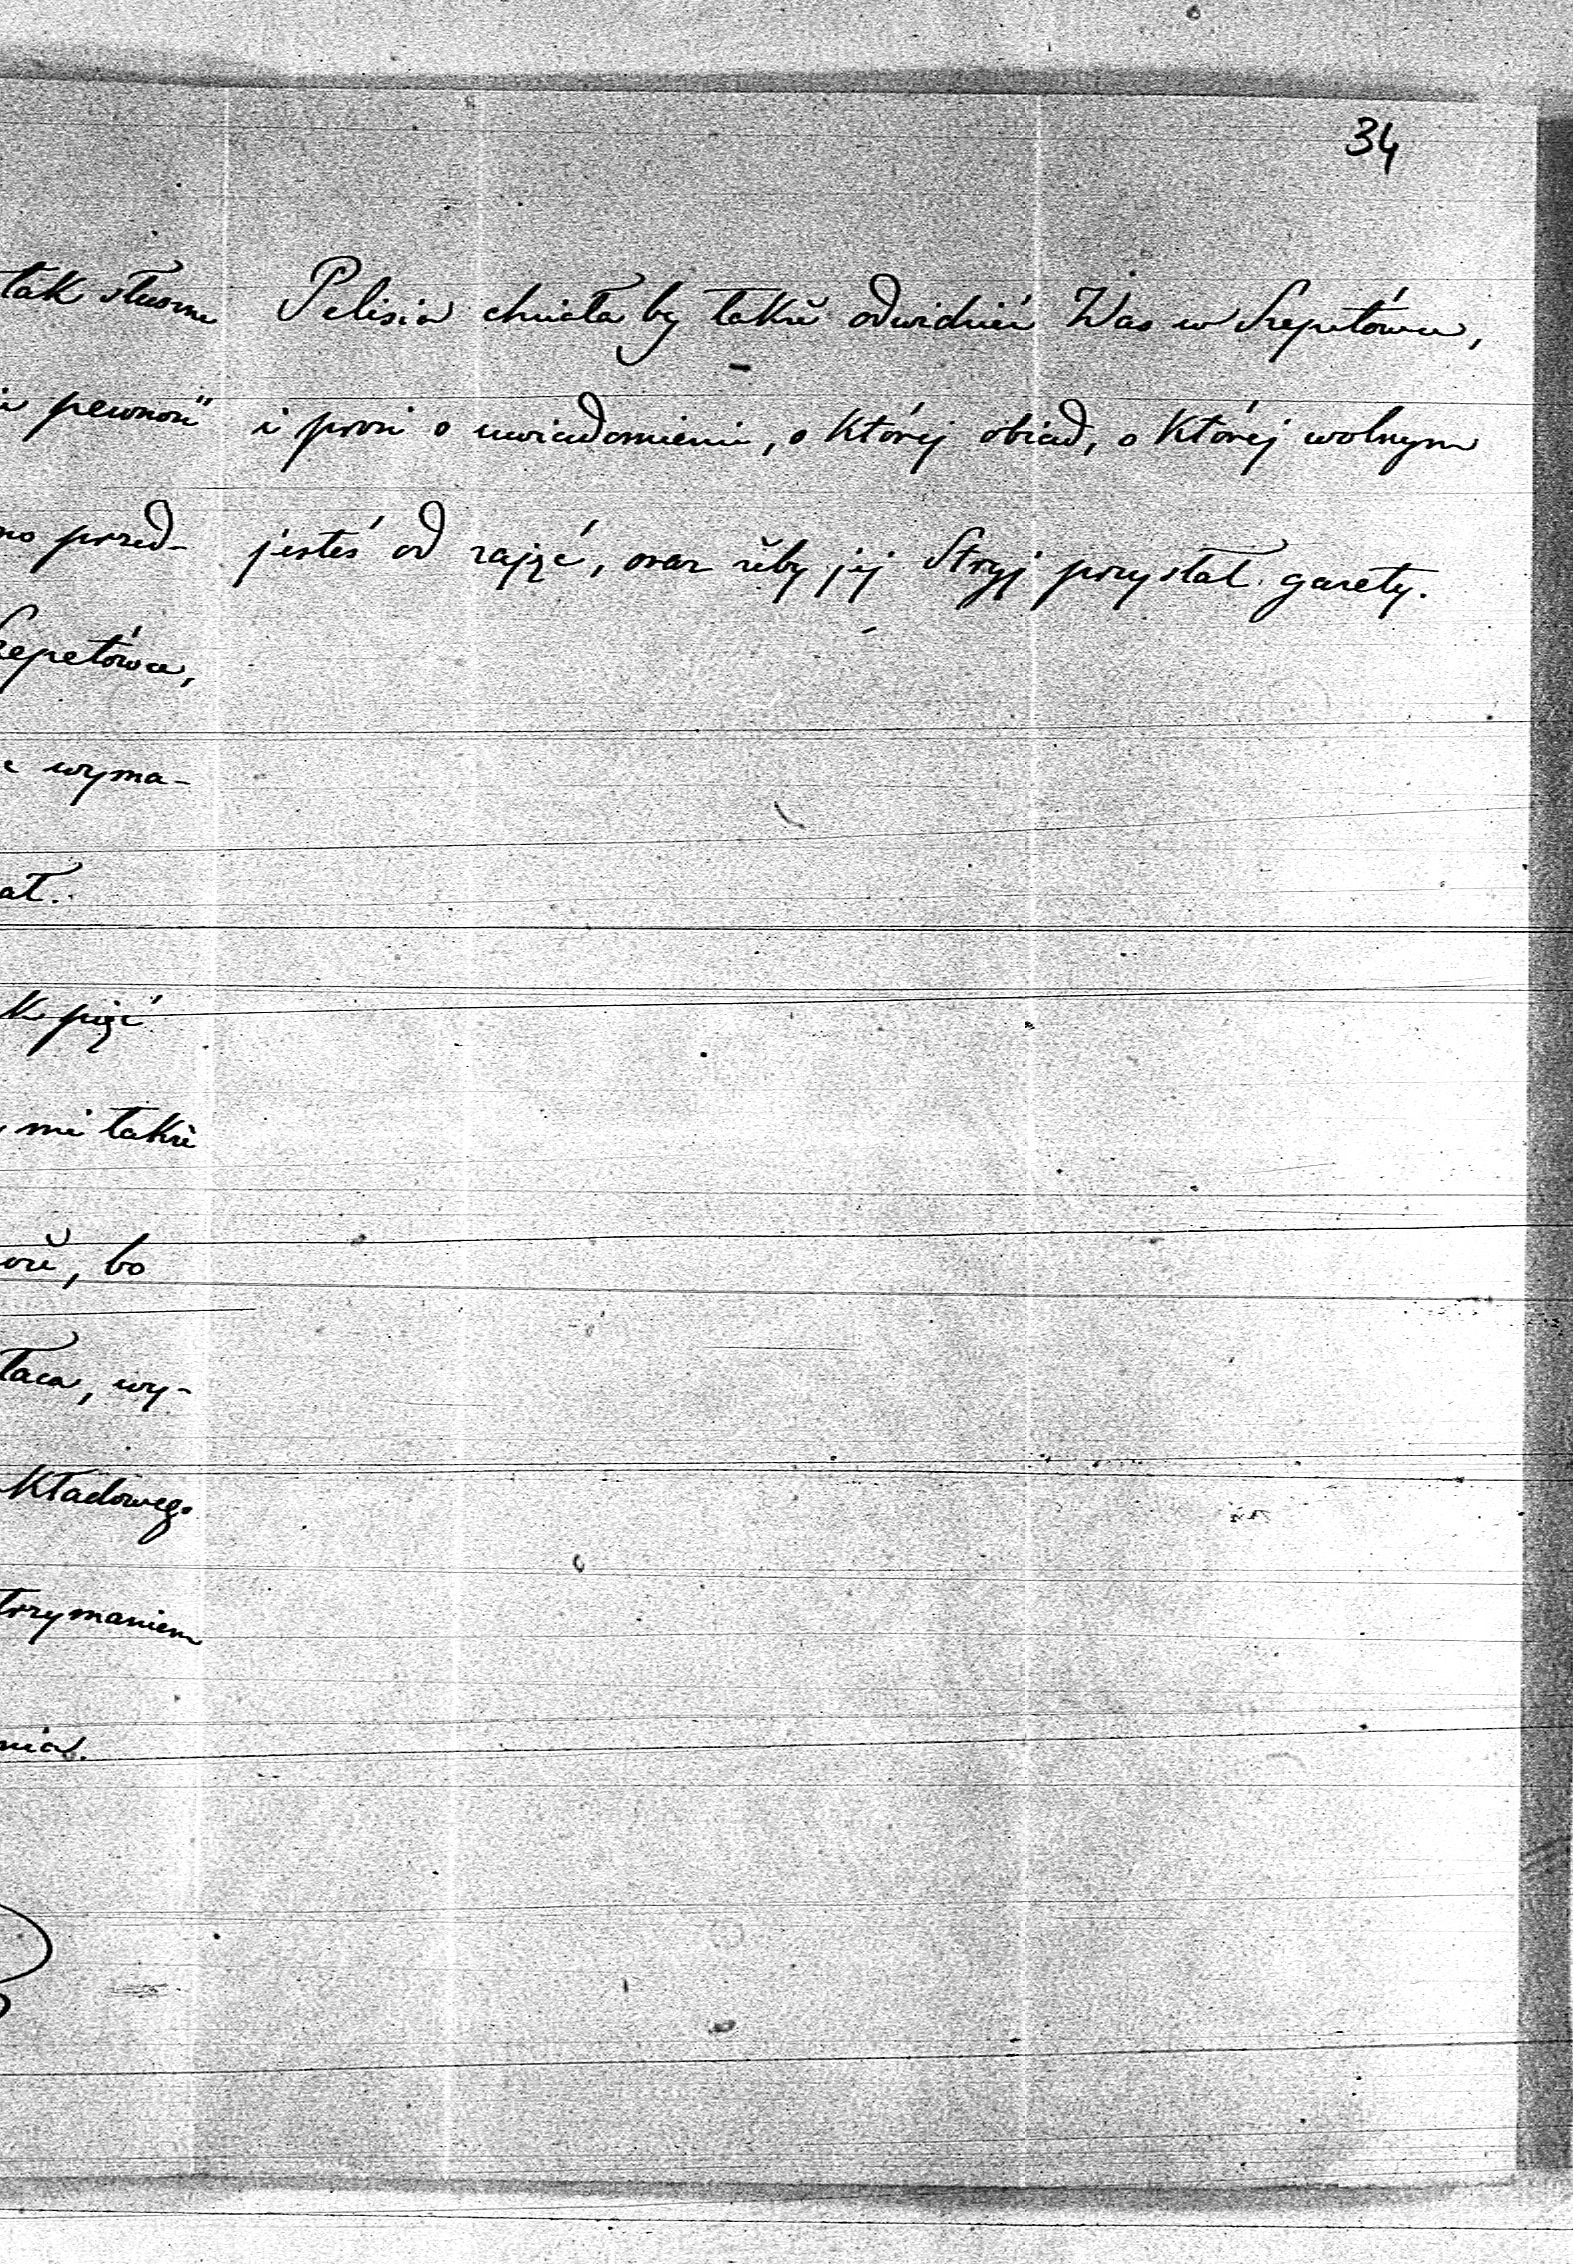 34
Pelisia chciała by także odwidzieć Was w Szepetówce,
i prosi o uwiadomienie, o której obiad, o której wolnym
jesteś od zajęć, oraz żeby jej Stryj przysłał gazety.
tak
pewność
przed-
Szepetówce,
wyma-
ał.
k pięć
mi także
oże, bo
łaca, wy-
kładowego
trzymaniem
nia.